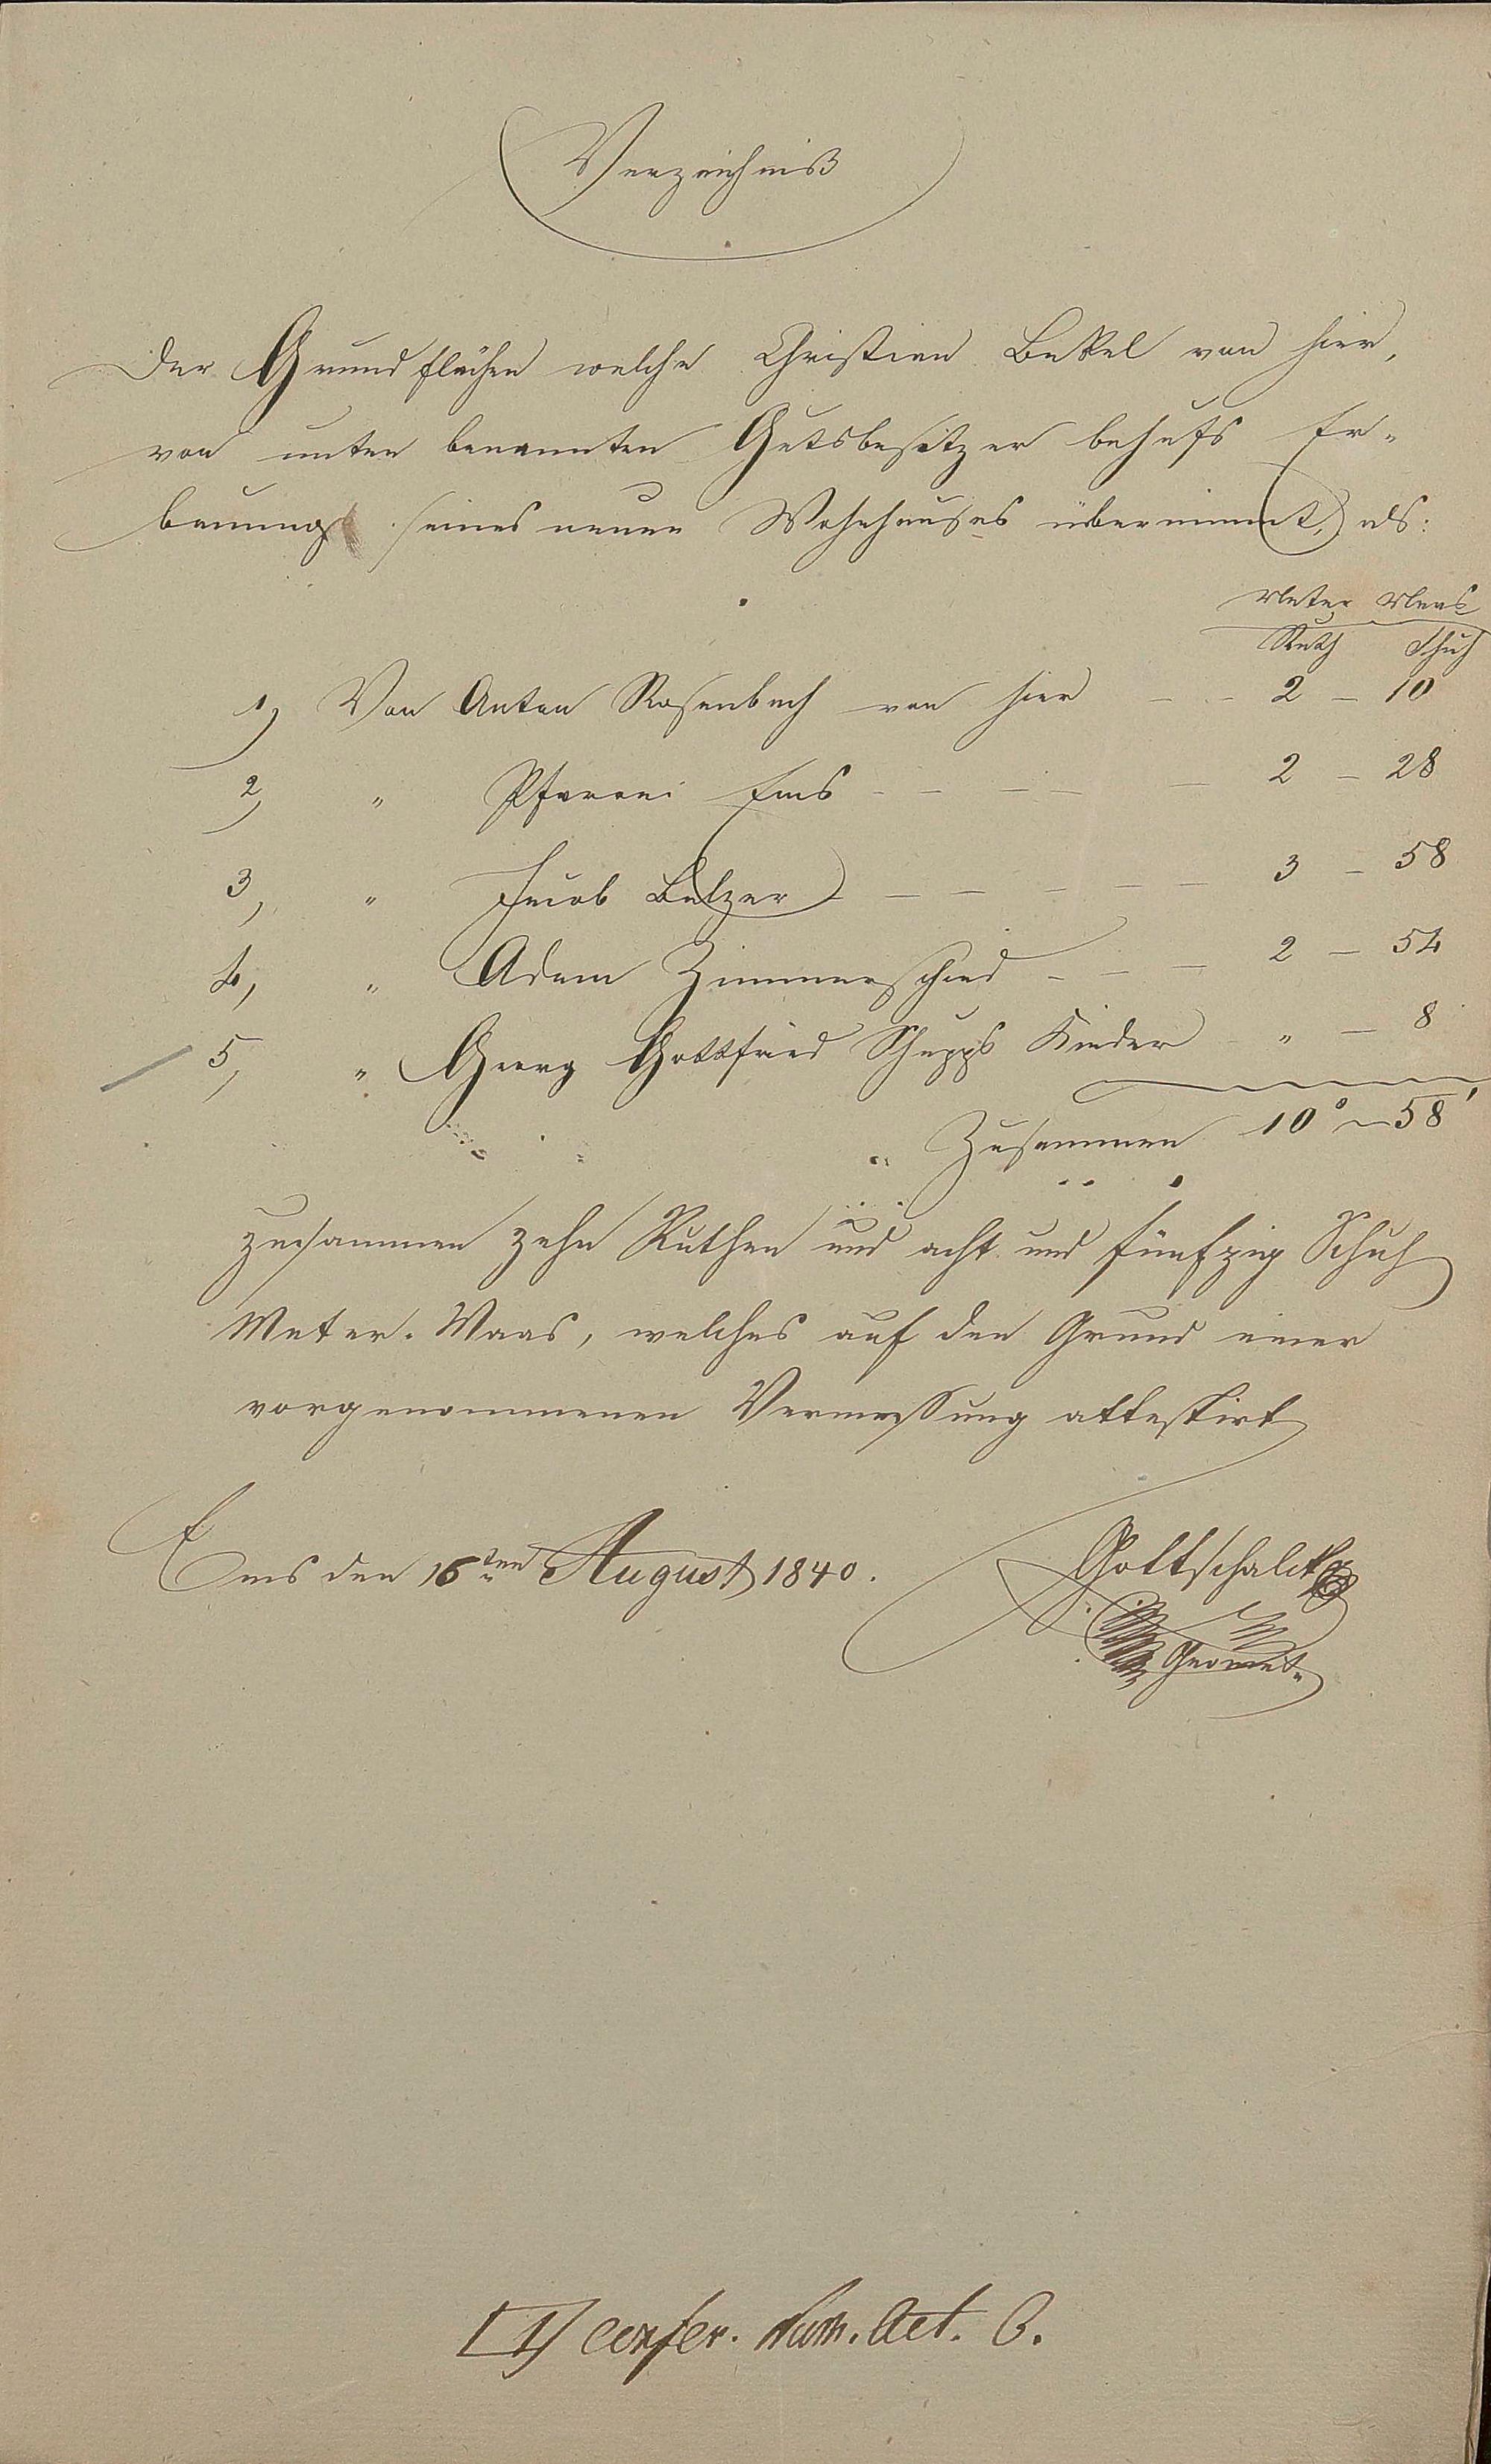 Verzeichniß
Der Grundflächen welche Christian Bekel von hier,
von unten benannten Gutsbesitzer behufs Er-
bauung seines neuen Wohnhauses übernimmt, als:
Meter Maas
Ruth Schuh
1) Von Anton Rosenbach von hier - - 2 - 10
2, " Pfarrei Ems - - - - - 2 - 28
3, " Jacob Balzer - - - - - - 3 - 58
4, " Adam Zimmerschied - - - 2 - 54
5, " Georg Gottfried Schupps Kinder " - 8
Zusammen 10° - 58'
zusammen zehn Ruthen und acht und fünfzig Schuh
Meter-Maas, welches auf den Grund einer
vorgenommenen Vermessung attestirt
Ems den 16ten August 1840.
Gottschalck
Geomet.
confer. Num. Act. 6.